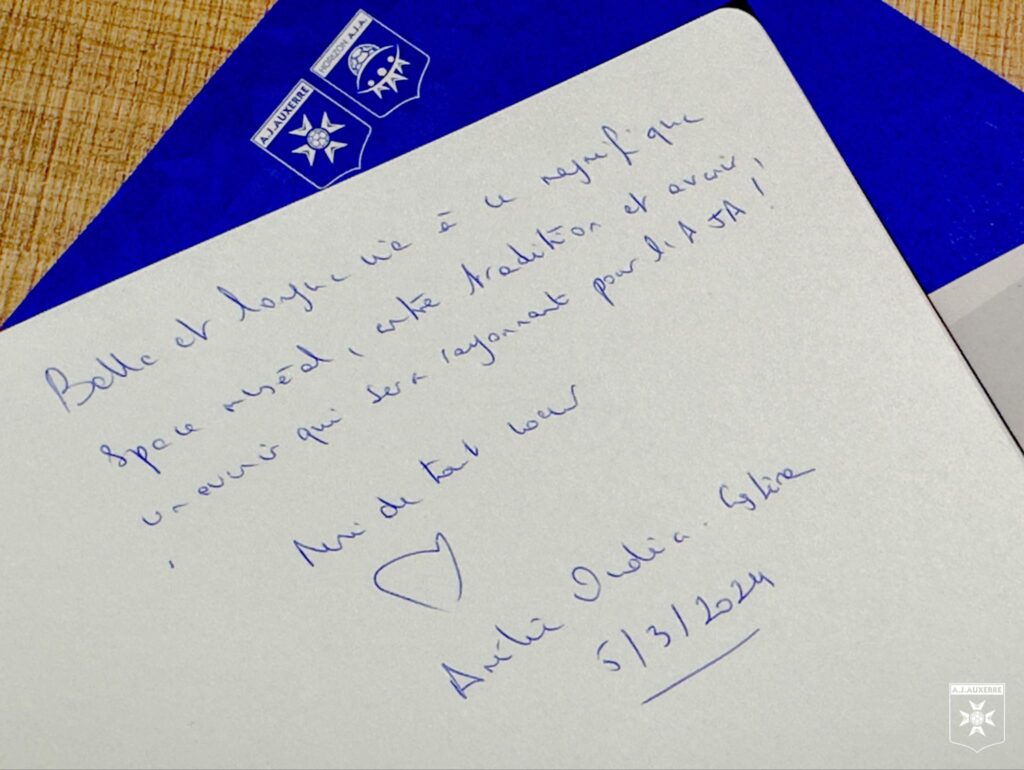 HORIZON A.J.A.
A.J.AUXERRE
Belle et longue vie à ce magnifique
Space muséal, entre tradition et avenir,
un avenir qui sera rayonnant pour l'AJA !
Merci de tout coeur
5/3/2024
A.J.AUXERRE